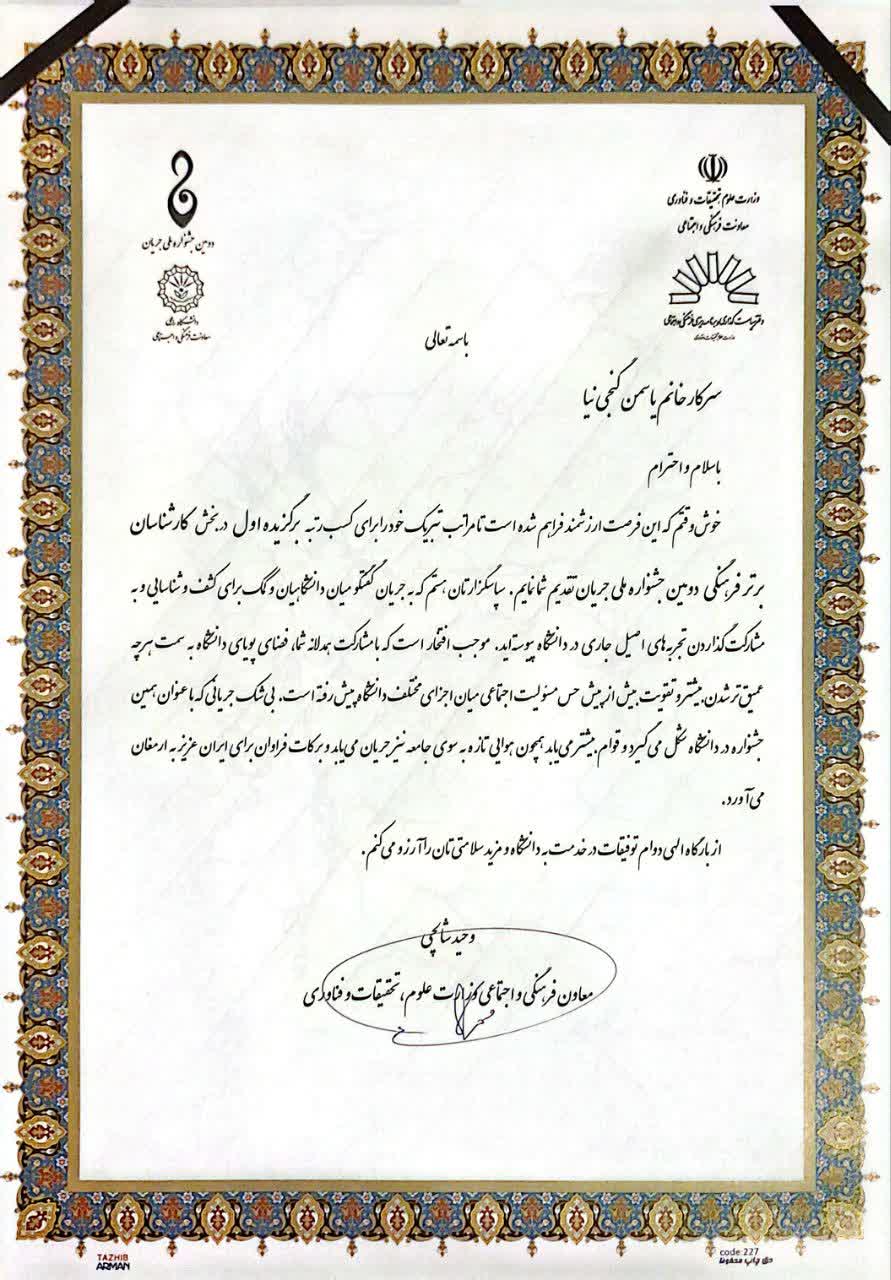 وزارت علوم، تحقیقات و فناوری
معاونت فرهنگی و اجتماعی
دفتر سیاست گذاری و برنامه ریزی فرهنگی و اجتماعی
دومین جشنواره ملی جریان
معاونت فرهنگی و اجتماعی
باسمه تعالی
سرکار خانم یاسمن گنجی نیا
با سلام و احترام
خوش‌وقتم که این فرصت ارزشمند فراهم شده است تا مراتب تبریک خود را برای کسب رتبه برگزیده اول در بخش کارشناسان
برتر فرهنگی دومین جشنواره ملی جریان تقدیم شما نمایم. سپاسگزارتان هستم که به جریان گفتگو میان دانشگاهیان و کمک برای کشف و شناسایی و به
مشارکت گذاردن تجربه‌های اصیل جاری در دانشگاه پیوسته‌اید. موجب افتخار است که با مشارکت همدلانه شما، فضای پویای دانشگاه به سمت هرچه
عمیق‌تر شدن بیشتر و تقویت بیش از پیش حس مسئولیت اجتماعی میان اجزای مختلف دانشگاه پیش رفته است. بی‌شک جریانی که با عنوان همین
جشنواره در دانشگاه شکل می‌گیرد و قوام بیشتر می‌یابد همچون هوایی تازه به سوی جامعه نیز جریان می‌یابد و برکات فراوان برای ایران عزیز به ارمغان
می‌آورد.
از بارگاه الهی دوام توفیقات در خدمت به دانشگاه و مزید سلامتی‌تان را آرزو می‌کنم.
وحید شالچی
معاون فرهنگی و اجتماعی وزارت علوم، تحقیقات و فناوری
TAZHIB
ARMAN
code:227
حق چاپ محفوظ